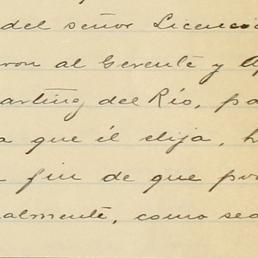 del señor Licenci
ron al Gerente y Ap
artinez del Río, pa
a que él elija, h
fin de que po
almente, como sea